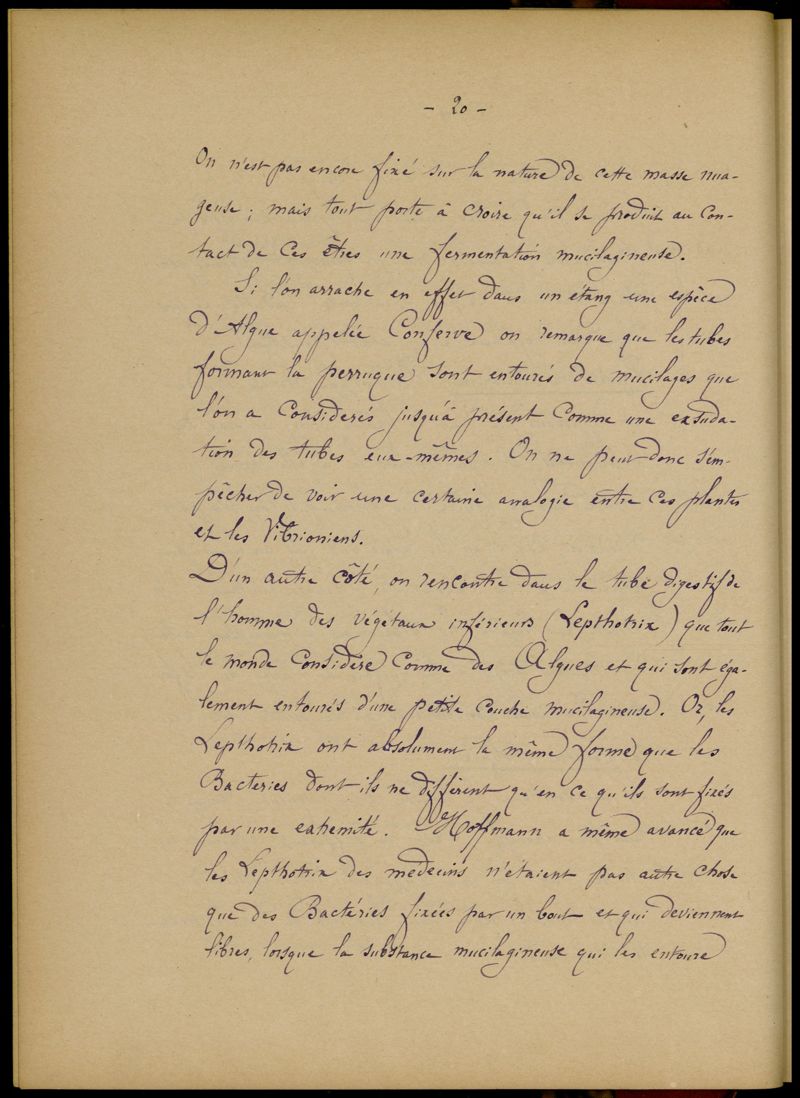 - 20 -
On n'est pas encore fixé sur la nature de cette masse nua-
geuse ; mais tout porte à croire qu'il se produit au con-
tact de ces êtres une fermentation mucilagineuse.
Si l'on arrache en effet dans un étang une espèce
d'Algue appelée Conferve on remarque que les tubes
formant la perruque sont entourés de mucilages que
l'on a considerés jusqu'à présent comme une exsuda-
tion des tubes eux-mêmes. On ne peut donc s'em-
pêcher de voir une certaine analogie entre ces plantes
et les Vibrioniens.
D'un autre côté, on rencontre dans le tube digestif de
l'homme des végétaux inférieurs (Lepthotrix) que tout
le monde considère comme des Algues et qui sont éga-
lement entourés d'une petite couche mucilagineuse. Or, les
Lepthotrix ont absolument la même forme que les
Bacteries dont ils ne diffèrent qu'en ce qu'ils sont fixés
par une extremité. Hoffmann a même avancé que
les Lepthotrix des médecins n'étaient pas autre chose
que des Bactéries fixées par un bout et qui deviennent
libres, lorsque la substance mucilagineuse qui les entoure